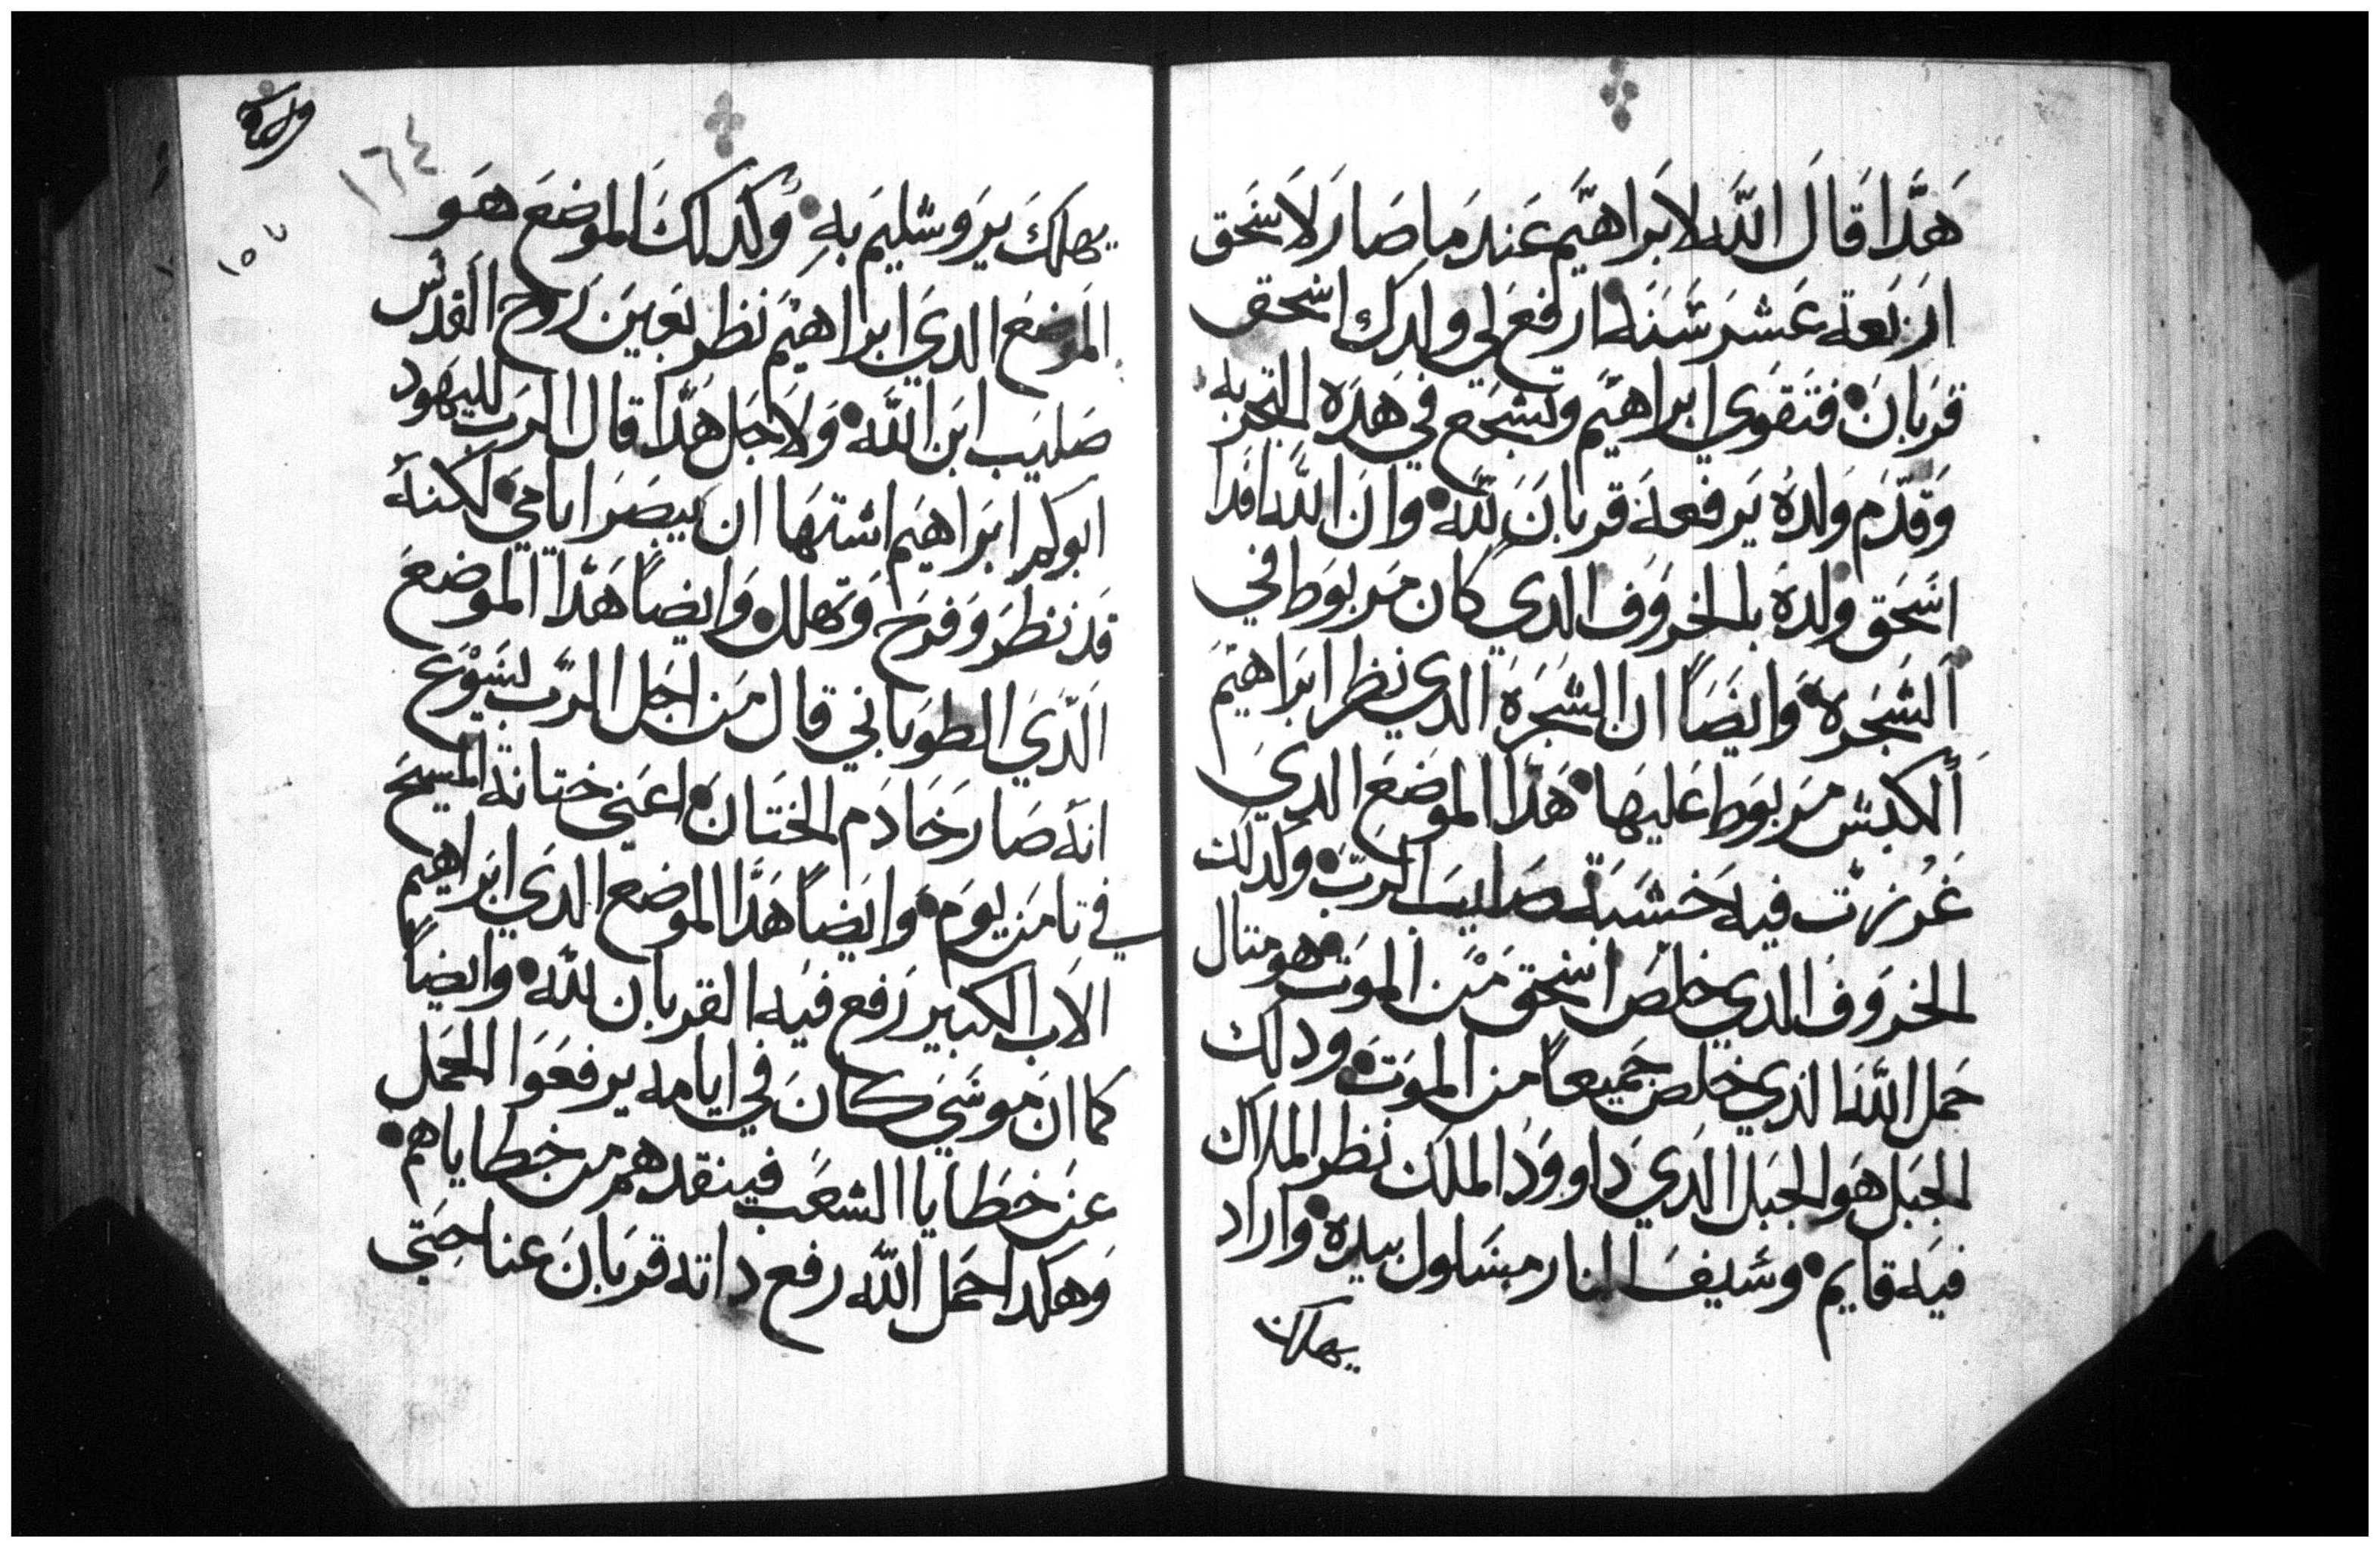 هَدَا قَالَ اللَّه لابَراهيَم عَندَ ما صَارَ لاسَحَق
اربَعة عَشرَ سَنَه ارفع لي ولدك اسحق
قربَان فتَقوي ابراهيَم وتشجَع في هَدَه التجَربه
وَقدَم وَلدهُ يَرفعهَ قربانَ للَّه وانَ اللَّه افدَا
اسَحَق ولدهَ بالخروَف الدي كان مَربوَط في
الشجَرة وَايضَاً ان الشجَرَة الدي نظر ابرَاهيمَ
الكبش مَربوَط عَليهَا هَدَا الموضعَ الديَ
غرزت فيه خشبَة صَليب الرَبّ وكَدلكَ
الخروَف الدي خلصَ اسَحق مَن الموَت هو متال
حَمل اللَّه الدي خلصَ جَميعاً من الموَت ودلك
الجبَل هَو الجبَل الدَي دَاووَد الملك نظر الملاك
فيَه قايم وسَيفَ النار مسَلول بيدَه واراد
يهلك
ولادة
١٦٤
١٥٧
يهلكَ يرَوشليمَ بهِ وكدلكَ الموضعَ هَو
الموَضعَ الديَ ابراهيَم نَظر بعَينَ رَوح القَدس
صَليَب ابنَ اللَّه وَلاجَل هَدَا قال الرَب لليهود
ابوكم ابرَاهيَم اشتهَا ان يبصَرَ ايامي لكنهَ
قدَ نظرَ وَفرَح وَتهلل وَايضاً هَدَا الموضعَ
الدَي الطوبَاني قال مَن اجَل الرَّب يسَوَع
انهَ صَارَ خَادَم الختَان اعَني ختانة المسيحَ
في تامَن يوَم وايَضاً هَدَا الموضع الدَي ابَراهيم
الاب الكبير رَفع فيَه القربان للَّه وايضاً
كما انَ موسَي كانَ في ايامه يرفعَوا الحَمل
عنَ خطَايا الشعَب فينقدهم من خطاياهم
وَهَكدا حَمل اللَّه رفع داته قربَانَ عنا حَتي